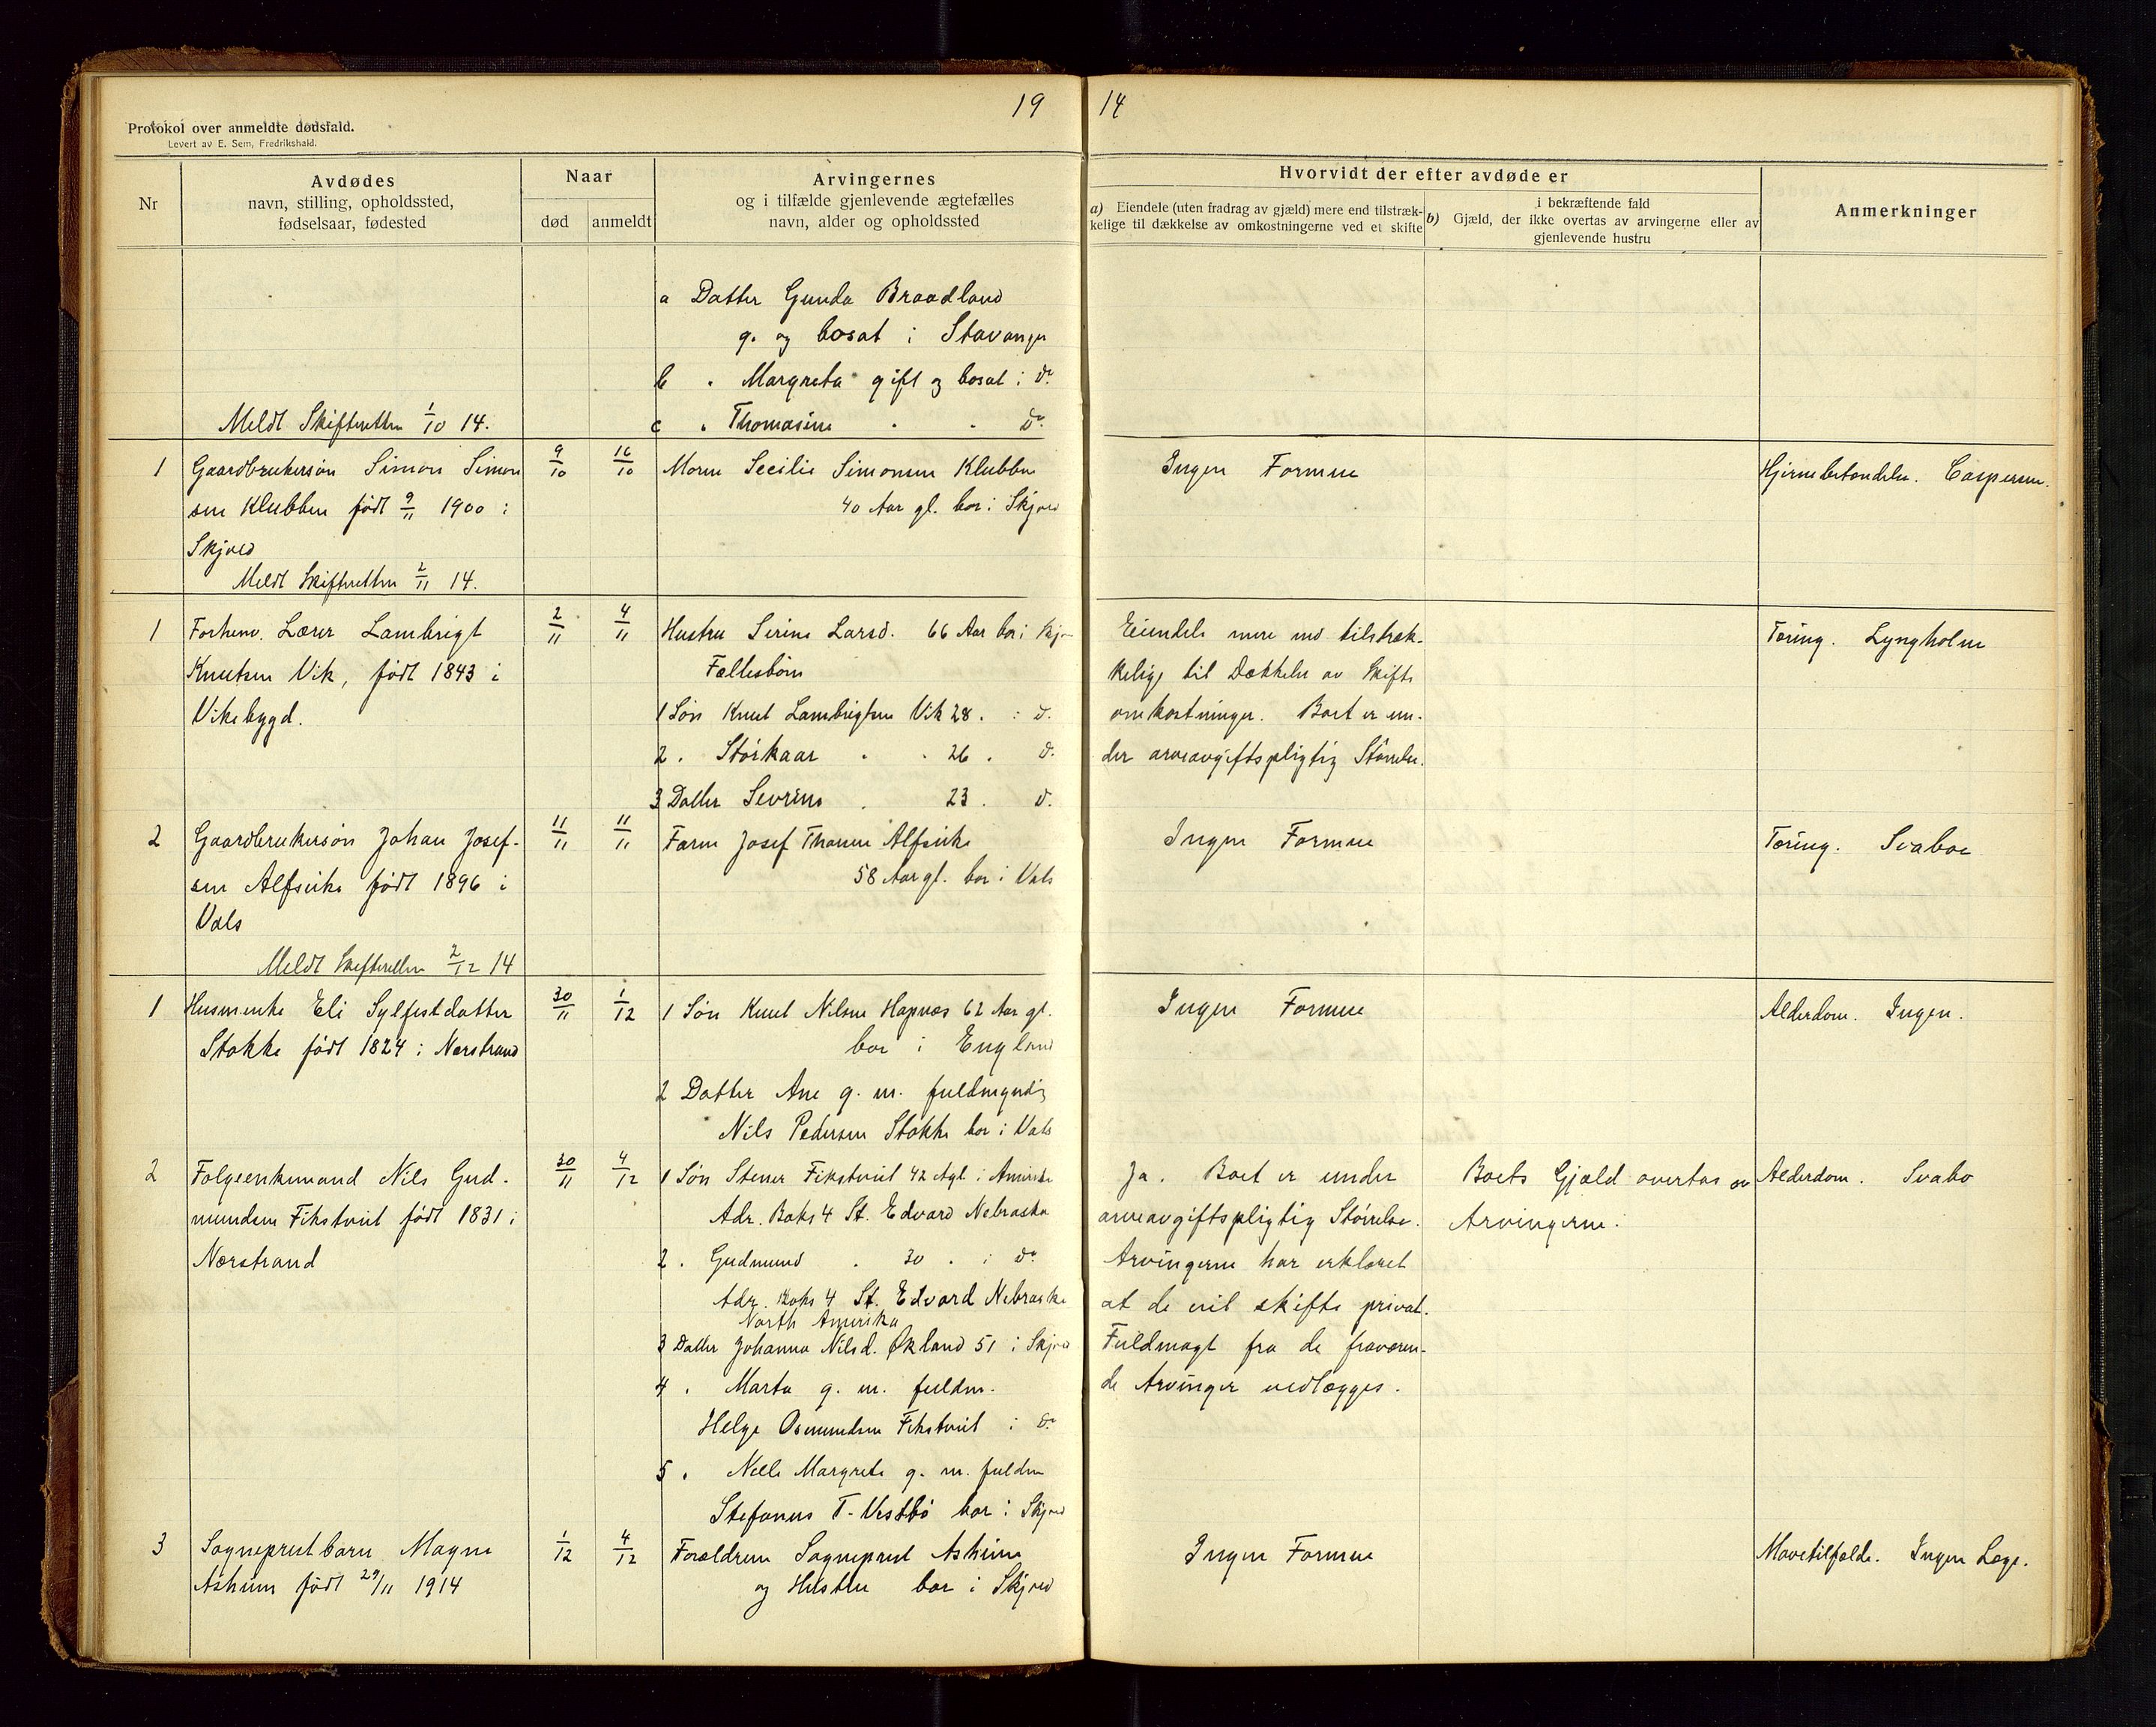 19 14
Protokol over anmeldte dødsfald.
Levert av E. Sem, Fredrikshald.
Nr
Avdødes
navn, stilling, opholdssted,
fødselsaar, fødested
Naar
død anmeldt
Arvingernes
og i tilfælde gjenlevende ægtefælles
navn, alder og opholdssted
Hvorvidt der efter avdøde er
a) Eiendele (uten fradrag av gjæld) mere end tilstræk-
kelige til dækkelse av omkostningerne ved et skifte
i bekræftende fald
b) Gjæld, der ikke overtas av arvingerne eller av
gjenlevende hustru
Anmerkninger
a Datter Gunda Braadland
g. og bosat i Stavanger
b " Margreta gift og bosat i do
c " Thomasine " " do
Meldt Skifteretten 1/10 14.
1 Gaardbrukersøn Simon Simon
sen Klubben født 9/11 1900 i
Skjold
Meldt Skifteretten 2/11 14.
9/10 16/10
Moren Secilie Simonsen Klubben
40 Aar gl. bor i Skjold
Ingen Formue
Hjernebetændelse. Caspersen.
1 Forhenv. Lærer Lambrigt
Knutsen Vik, født 1843 i
Vikebygd.
2/11 4/11
Hustru Serine Larsd. 66 Aar bor i Skj
Fællesbørn
1 Søn Knut Lambrigtsen Vik 28 " i d.
2 " Storkaar " " 26 " d.
3 Datter Sevrine " 23 " d.
Eiendele mere end tilstræk-
kelige til Dækkelse av Skifte
omkostninger. Boet er un-
der arveavgiftspligtig Størrelse.
Tæring. Lyngholm
2 Gaardbrukersøn Johan Josef-
sen Alfsvike født 1896 i
Vats
Meldt Skifteretten 2/12 14
11/11 11/11
Faren Josef Thomsen Alfsvike
58 Aar gl. bor i Vats
Ingen Formue
Tæring. Svaboe
1 Husmenke Eli Sylfestdatter
Stokke født 1824 i Nærstrand
30/11 1/12
1 Søn Knut Nilsen Hapnæs 62 Aar gl.
bor i England
2 Datter Ane g. m. fuldmyndig
Nils Pedersen Stokke bor i Vats
Ingen Formue
Alderdom. Ingen.
2 Følgeenkemand Nils Gud-
mundsen Fikstveit født 1831 i
Nærstrand
30/11 4/12
1 Søn Stener Fikstveit 42 Agl i Amerika
Adr. Boks 4 St. Edvard Nebraska
2 " Gudmund " 30 " i do
Adr. Boks 4 St. Edvard Nebraska
North Amerika
3 Datter Johanna Nilsd. Økland 51 i Skjold
4 " Marta g. m. fuldm.
Helge Osmundsen Fikstveit i do
5 " Nelle Margrete g. m. fuldm
Stefanus T. Vestbø bor i Skjold
Ja. Boet er under
arveavgiftspligtig Størrelse.
Arvingerne har erklæret
at de vil skifte privat.
Fuldmagt fra de fraværen-
de Arvinger vedlægges.
Boets Gjæld overtas av
Arvingerne.
Alderdom. Svabo
3 Sogneprestbarn Magne
Asheim født 29/11 1914
1/12 4/12
Forældrene Sogneprest Asheim
og Hustru bor i Skjold
Ingen Formue
Mavetilfælde. Ingen Læge.